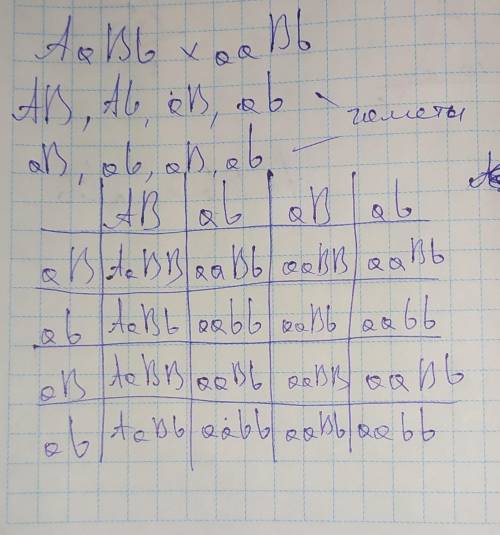 AaBb × aaBb
AB, Ab, aB, ab
гаметы
aB, ab, aB, ab
AB ab aB ab
aB AaBB aaBb aaBB aaBb
ab AaBb aabb aaBb aabb
aB AaBB aaBb aaBB aaBb
ab AaBb aabb aaBb aabb